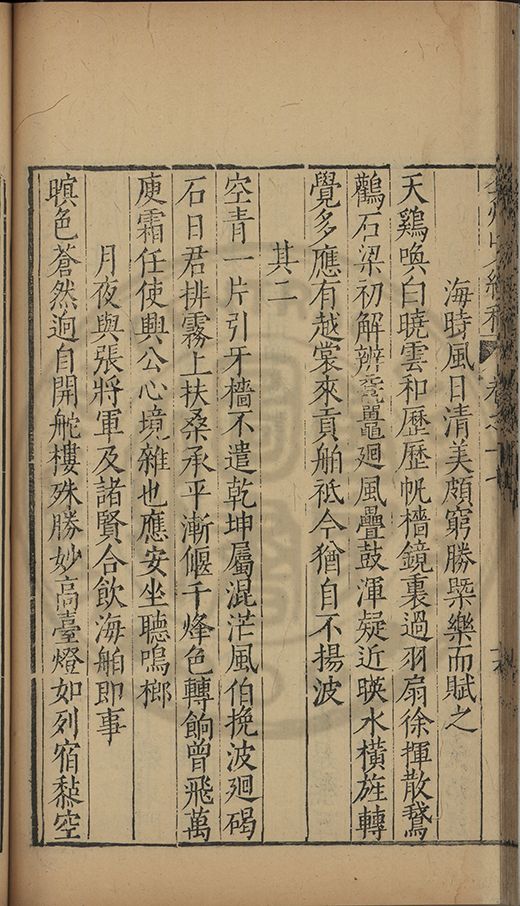 海時風日清美頗窮勝槩樂而賦之
天鷄喚白曉雲和歷歷帆檣鏡裏過羽扇徐揮散鵞
鸛石梁初解辨黿鼉廻風疊鼓渾疑近暎水橫旌轉
覺多應有越裳來貢舶祗今猶自不揚波
其二
空青一片引牙檣不遣乾坤屬混茫風伯挽波廻碣
石日君排霧上扶桑承平漸偃千烽色轉餉曾飛萬
庾霜任使興公心境雜也應安坐聽鳴榔
月夜與張將軍及諸賢合飲海舶即事
暝色蒼然逈自開舵樓殊勝妙高臺燈如列宿黏空